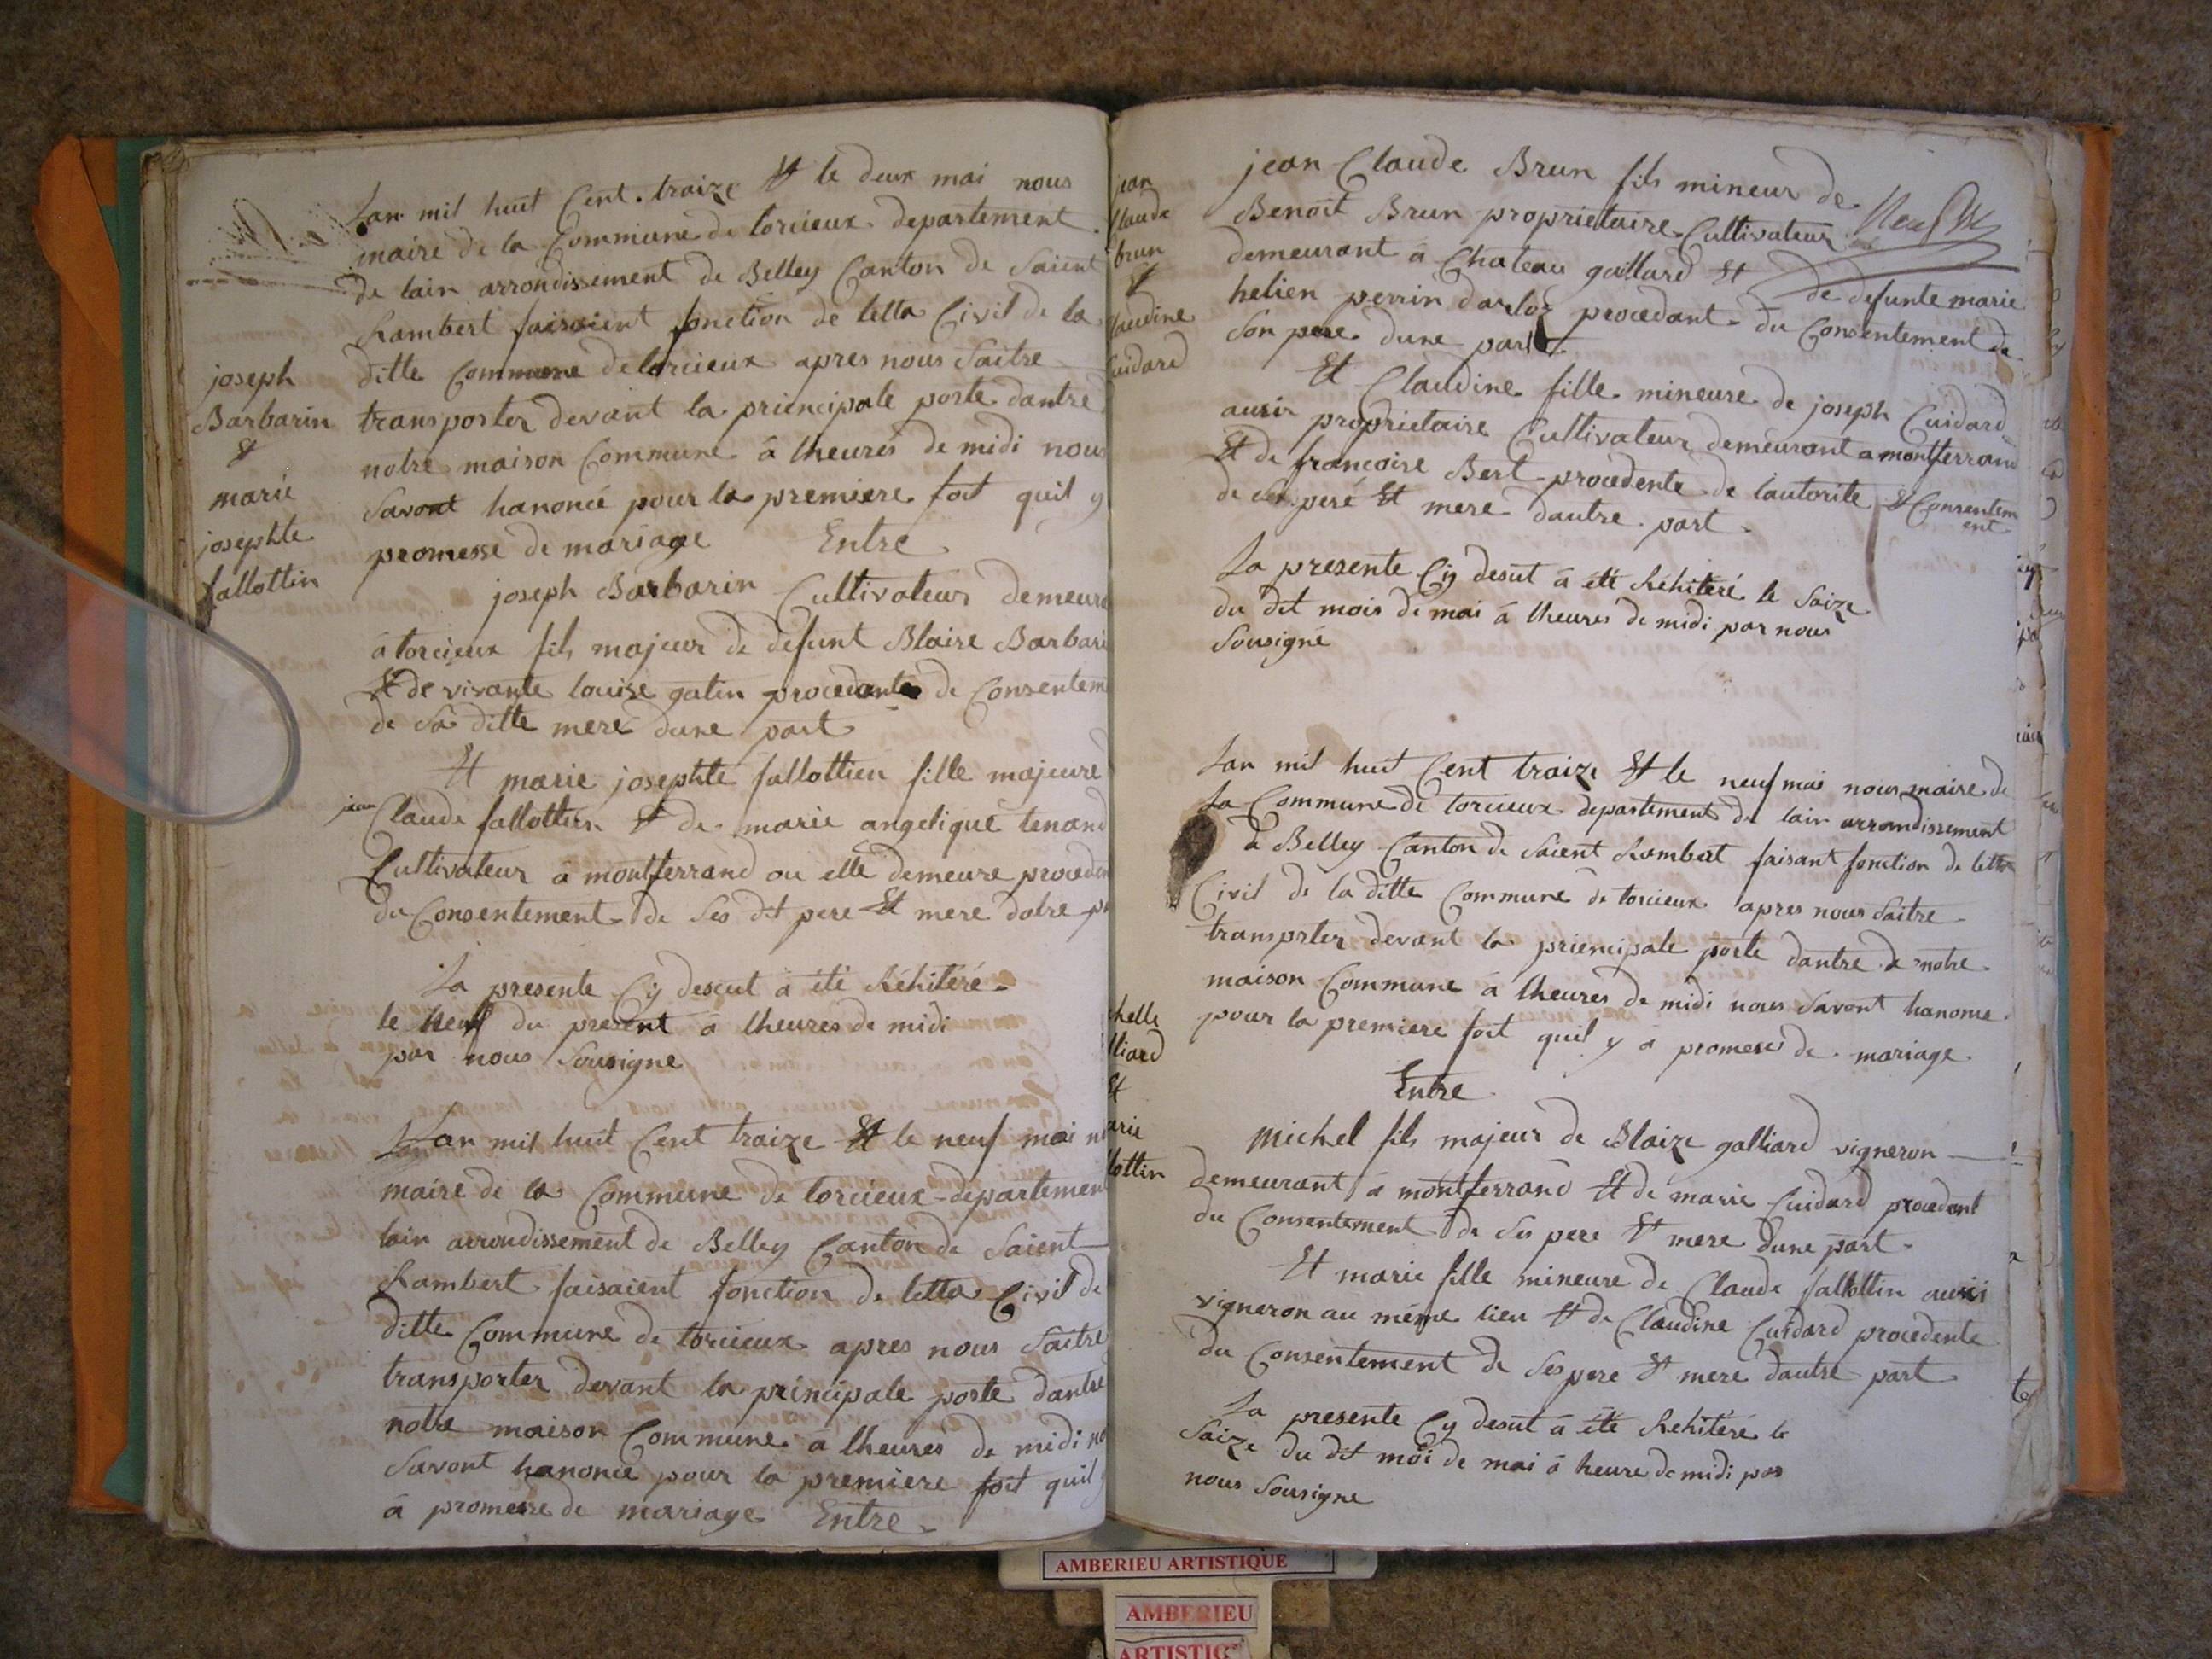 Lan mil huit Cent. traize Et le deux mai nous
maire de la Commune de torcieux departement
de lain arrondissement de Belley Canton de Saient
Rambert faisaient fonction de letta Civil de la
ditte Commune de torcieux apres nous Saitre
transporter devant la priencipale porte dantré
notre maison Commune à lheurés de midi nous
Savont hanoncé pour la premiere foit quil y
promesse de mariage Entre
joseph
Barbarin
Et
marie
josephte
fallottin
joseph Barbarin Cultivateur demeure
á torcieux fils majeur de défunt Blaise Barbari
Et de vivante louise gatin procedante de Consentem
de Sa ditte mere dune part
Et marie josephte fallottien fille majeure
jean Claude fallottien Et de marie angelique tenand
Cultivateur à montferrand ou elle demeure proceden
du Consentement de Ses dt pere Et mere dotre p
La presente Cy descut à été Réhitéré
le Neuf du present à lheures de midi
par nous Sousigne
Lan mil huit Cent traize Et le neuf mai n
maire de la Commune de torcieux departement
lain arrondissement de Belley Canton de Saient
Rambert faisaient fonction de letta Civil de
ditte Commune de torcieux apres nous Saitre
transporter devant la principale porte dantré
notre maison Commune à lheurés de midi no
Savont hanoncé pour la premiere foit quil y
à promesse de mariage Entre
jean
Claude
brun
Et
laudine
uidard
jean Claude Brun fils mineur de
Benoit Brun proprietaire Cultivateur
demeurant à Chateau gaillard Et de defunte marie
helien perrin darloz procedant du Consentement de
Son pere dune part
Et Claudine fille mineure de joseph Cuidard
aussi proprietaire Cultivateur demeurant a montferrand
Et de francoise Bert procedente de lautorite Et Consentem
ent
de Ses peré Et mere dautre part
La presente Cy desut à été Réhitéré le Saize
du dit mois de mai à lheures de midi par nous
Sousigné
Lan mil huit Cent traize Et le neuf mai nous maire de
La Commune de torcieux departement de lain arrondissement
de Belley Canton de Saient Rambert faisant fonction de letta
Civil de la ditte Commune de torcieux apres nous Saitre
transporter devant la priencipale porte dantre de notre
maison Commune à lheures de midi nous Savont hanonce
pour la premiere foit quil y à promese de mariage
Entre
helle
lliard
Et
arie
lottin
Michel fils majeur de Blaize galliard vigneron
demeurant à montferrand Et de marie Cuidard procedent
du Consentement de Ses pere Et mere dune part
Et marie fille mineure de Claude fallottin aussi
vigneron au méme lieu Et de Claudine Cuidard procedente
du Consentement de Ses pere Et mere dautre part
La presente Cy desut à été Rehitéré le
Saize du dt moi de mai à heure de midi par
nous Sousigne
AMBERIEU ARTISTIQUE
AMBERIEU
ARTISTIQ